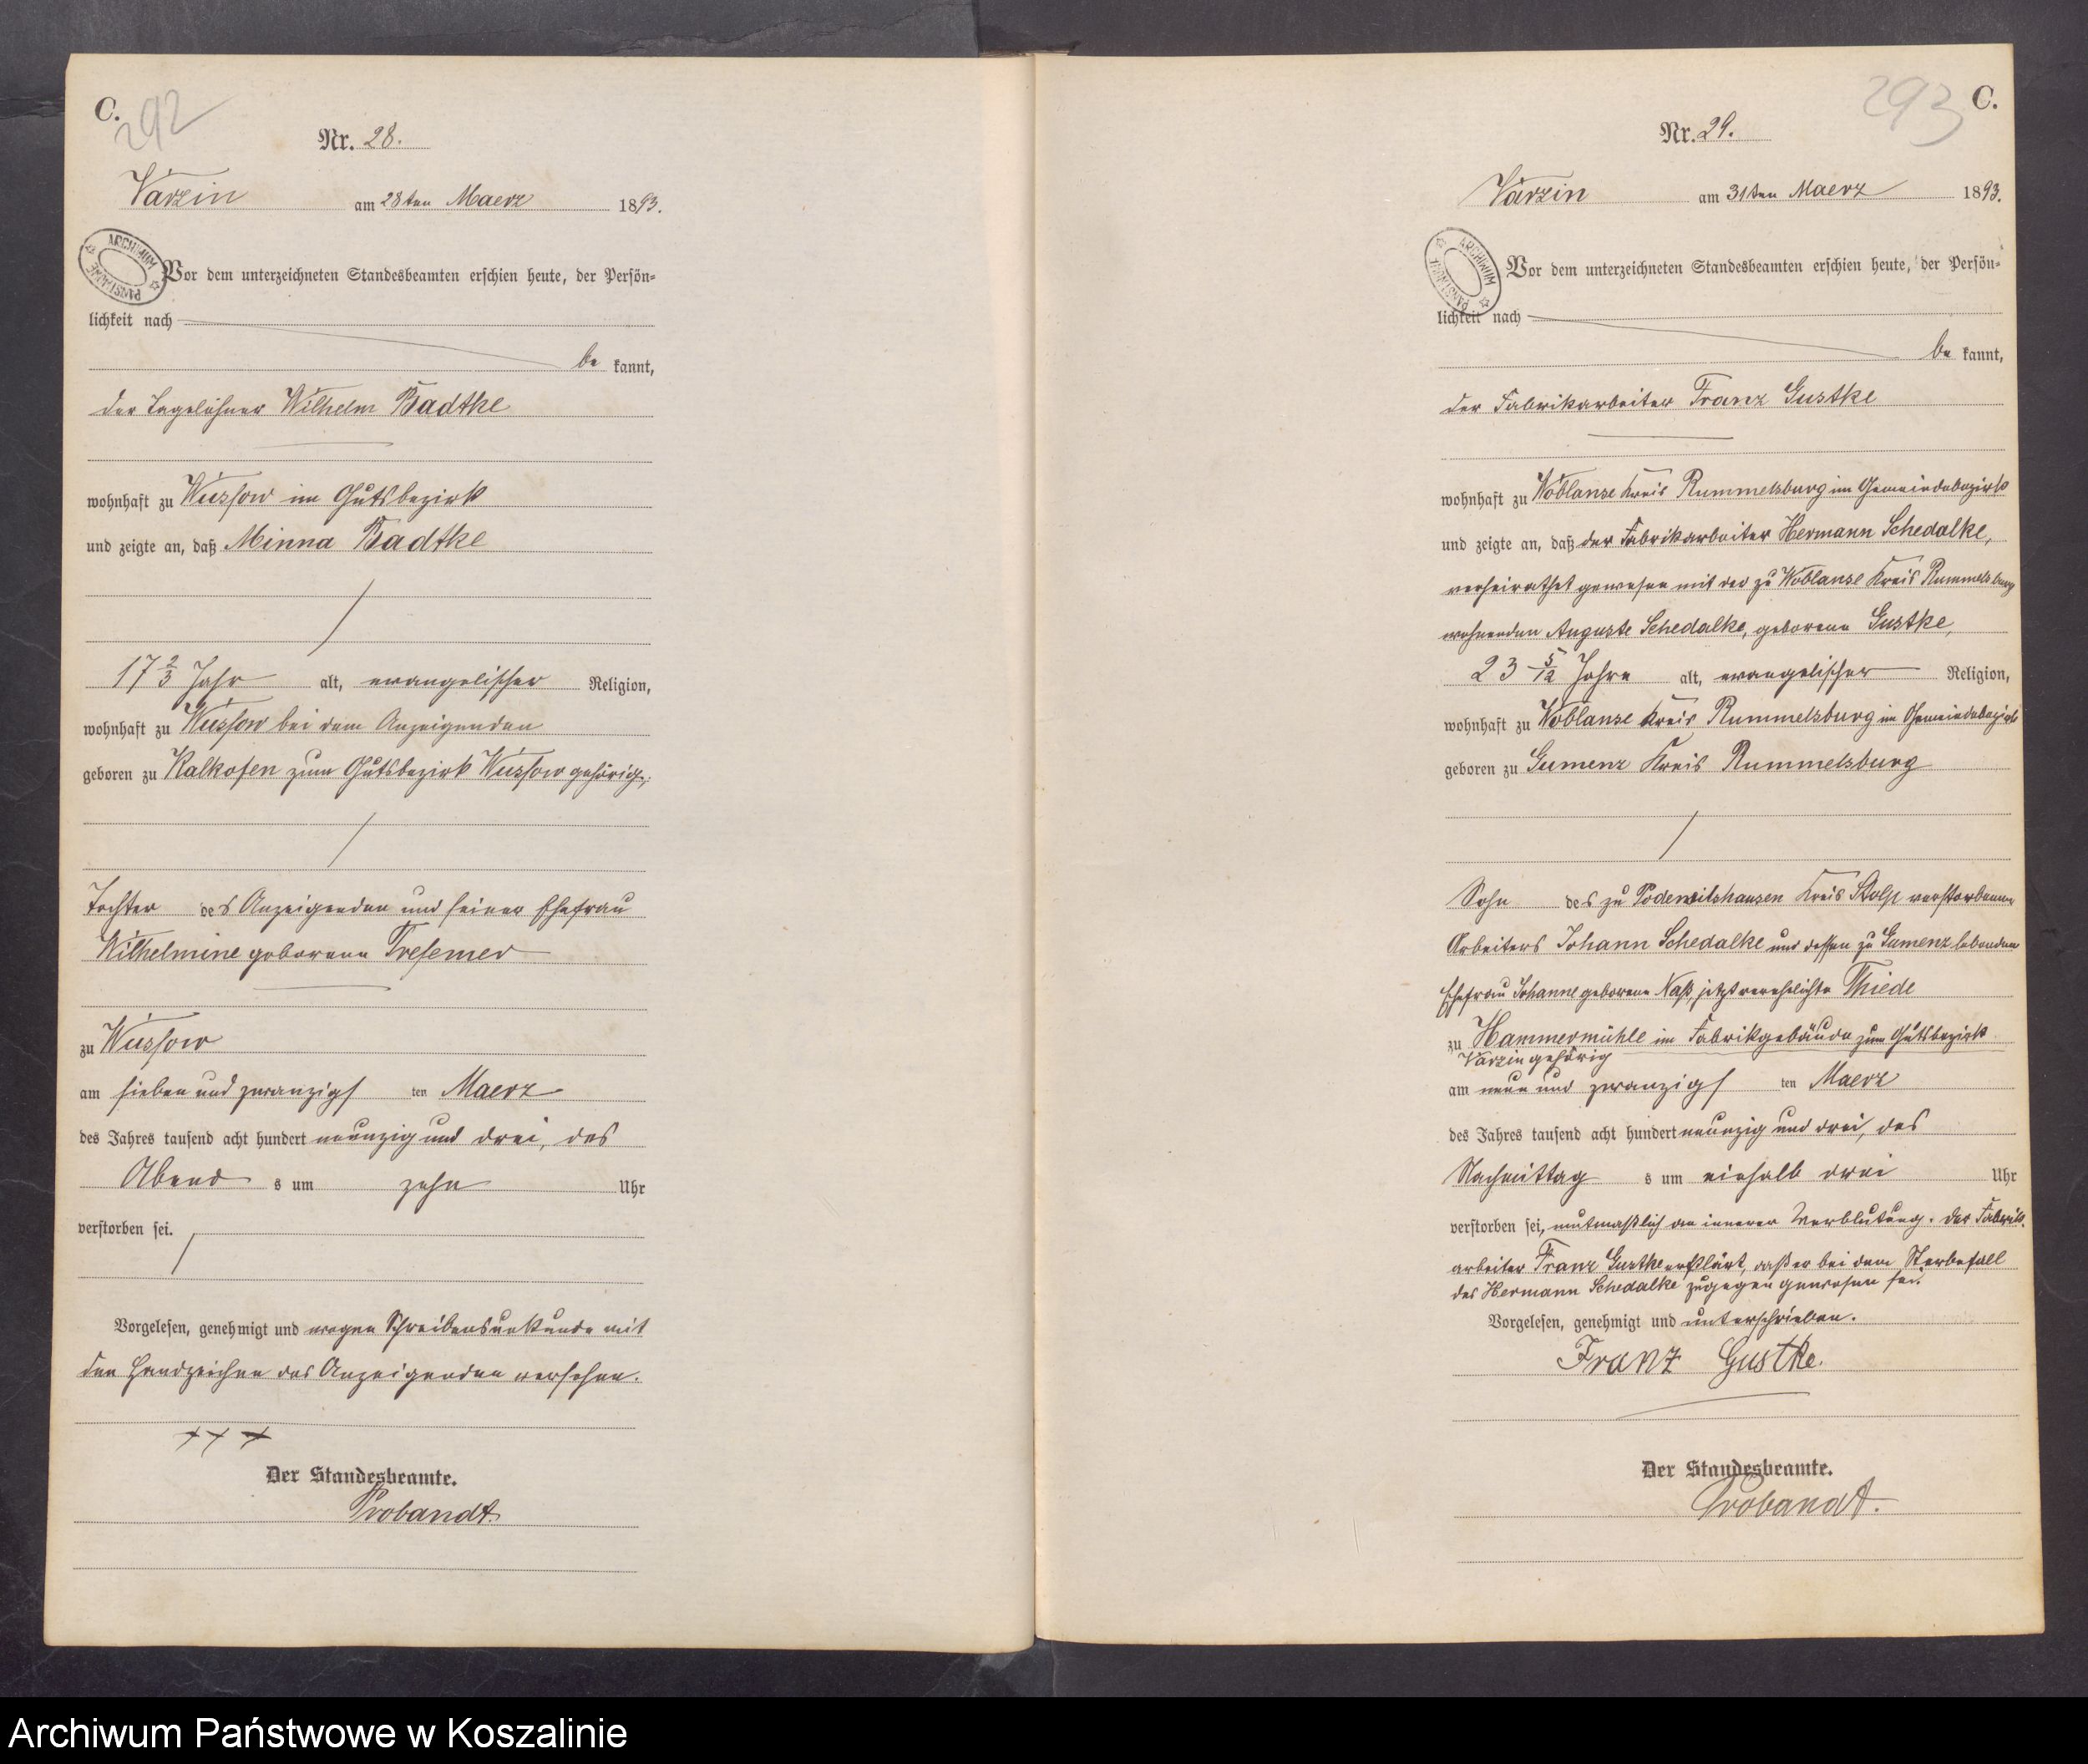 C.
292
Nr. 28.
Varzin am 28ten Maerz 1893.
ARCHIWUM PAŃSTWOWE
Vor dem unterzeichneten Standesbeamten erschien heute, der Persön=
lichkeit nach
be kannt,
der Tagelöhner Wilhelm Badtke
wohnhaft zu Wussow im Gutsbezirk
und zeigte an, daß Minna Badtke
17 2/3 Jahr alt, evangelischer Religion,
wohnhaft zu Wussow bei dem Anzeigenden
geboren zu Kalkofen zum Gutsbezirk Wussow gehörig,
Tochter des Anzeigenden und seiner Ehefrau
Wilhelmine geborene Tresemer
zu Wussow
am sieben und zwanzigs ten Maerz
des Jahres tausend acht hundert neunzig und drei, des
Abend s um zehn Uhr
verstorben sei.
Vorgelesen, genehmigt und wegen Schreibensunkunde mit
den Handzeichen des Anzeigenden versehen.
+++
Der Standesbeamte.
Probandt.
293
C.
Nr. 29.
Varzin am 31ten Maerz 1893.
ARCHIWUM PAŃSTWOWE
Vor dem unterzeichneten Standesbeamten erschien heute, der Persön=
lichkeit nach
be kannt,
der Fabrikarbeiter Franz Gustke
wohnhaft zu Woblanse Kreis Rummelsburg im Gemeindebezirk
und zeigte an, daß der Fabrikarbeiter Hermann Schedalke,
verheirathet gewesen mit der zu Woblanse Kreis Rummelsburg
wohnenden Auguste Schedalke, geborene Gustke,
23 5/12 Jahre alt, evangelischer Religion,
wohnhaft zu Woblanse Kreis Rummelsburg im Gemeindebezirk
geboren zu Gumenz Kreis Rummelsburg
Sohn des zu Podewilshausen Kreis Stolp verstorbenen
Arbeiters Johann Schedalke und dessen zu Gumenz lebenden
Ehefrau Johanne geborene Naß, jetzt verehelichte Thiede
zu Hammermühle im Fabrikgebäude zum Gutsbezirk
Varzin gehörig
am neun und zwanzigs ten Maerz
des Jahres tausend acht hundert neunzig und drei, des
Nachmittag s um einhalb drei Uhr
verstorben sei, mutmaßlich an innerer Verblutung. Der Fabrik=
arbeiter Franz Gustke erklärt, daß er bei dem Sterbefall
des Hermann Schedalke zugegen gewesen sei.
Vorgelesen, genehmigt und unterschrieben.
Franz Gustke.
Der Standesbeamte.
Probandt.
Archiwum Państwowe w Koszalinie